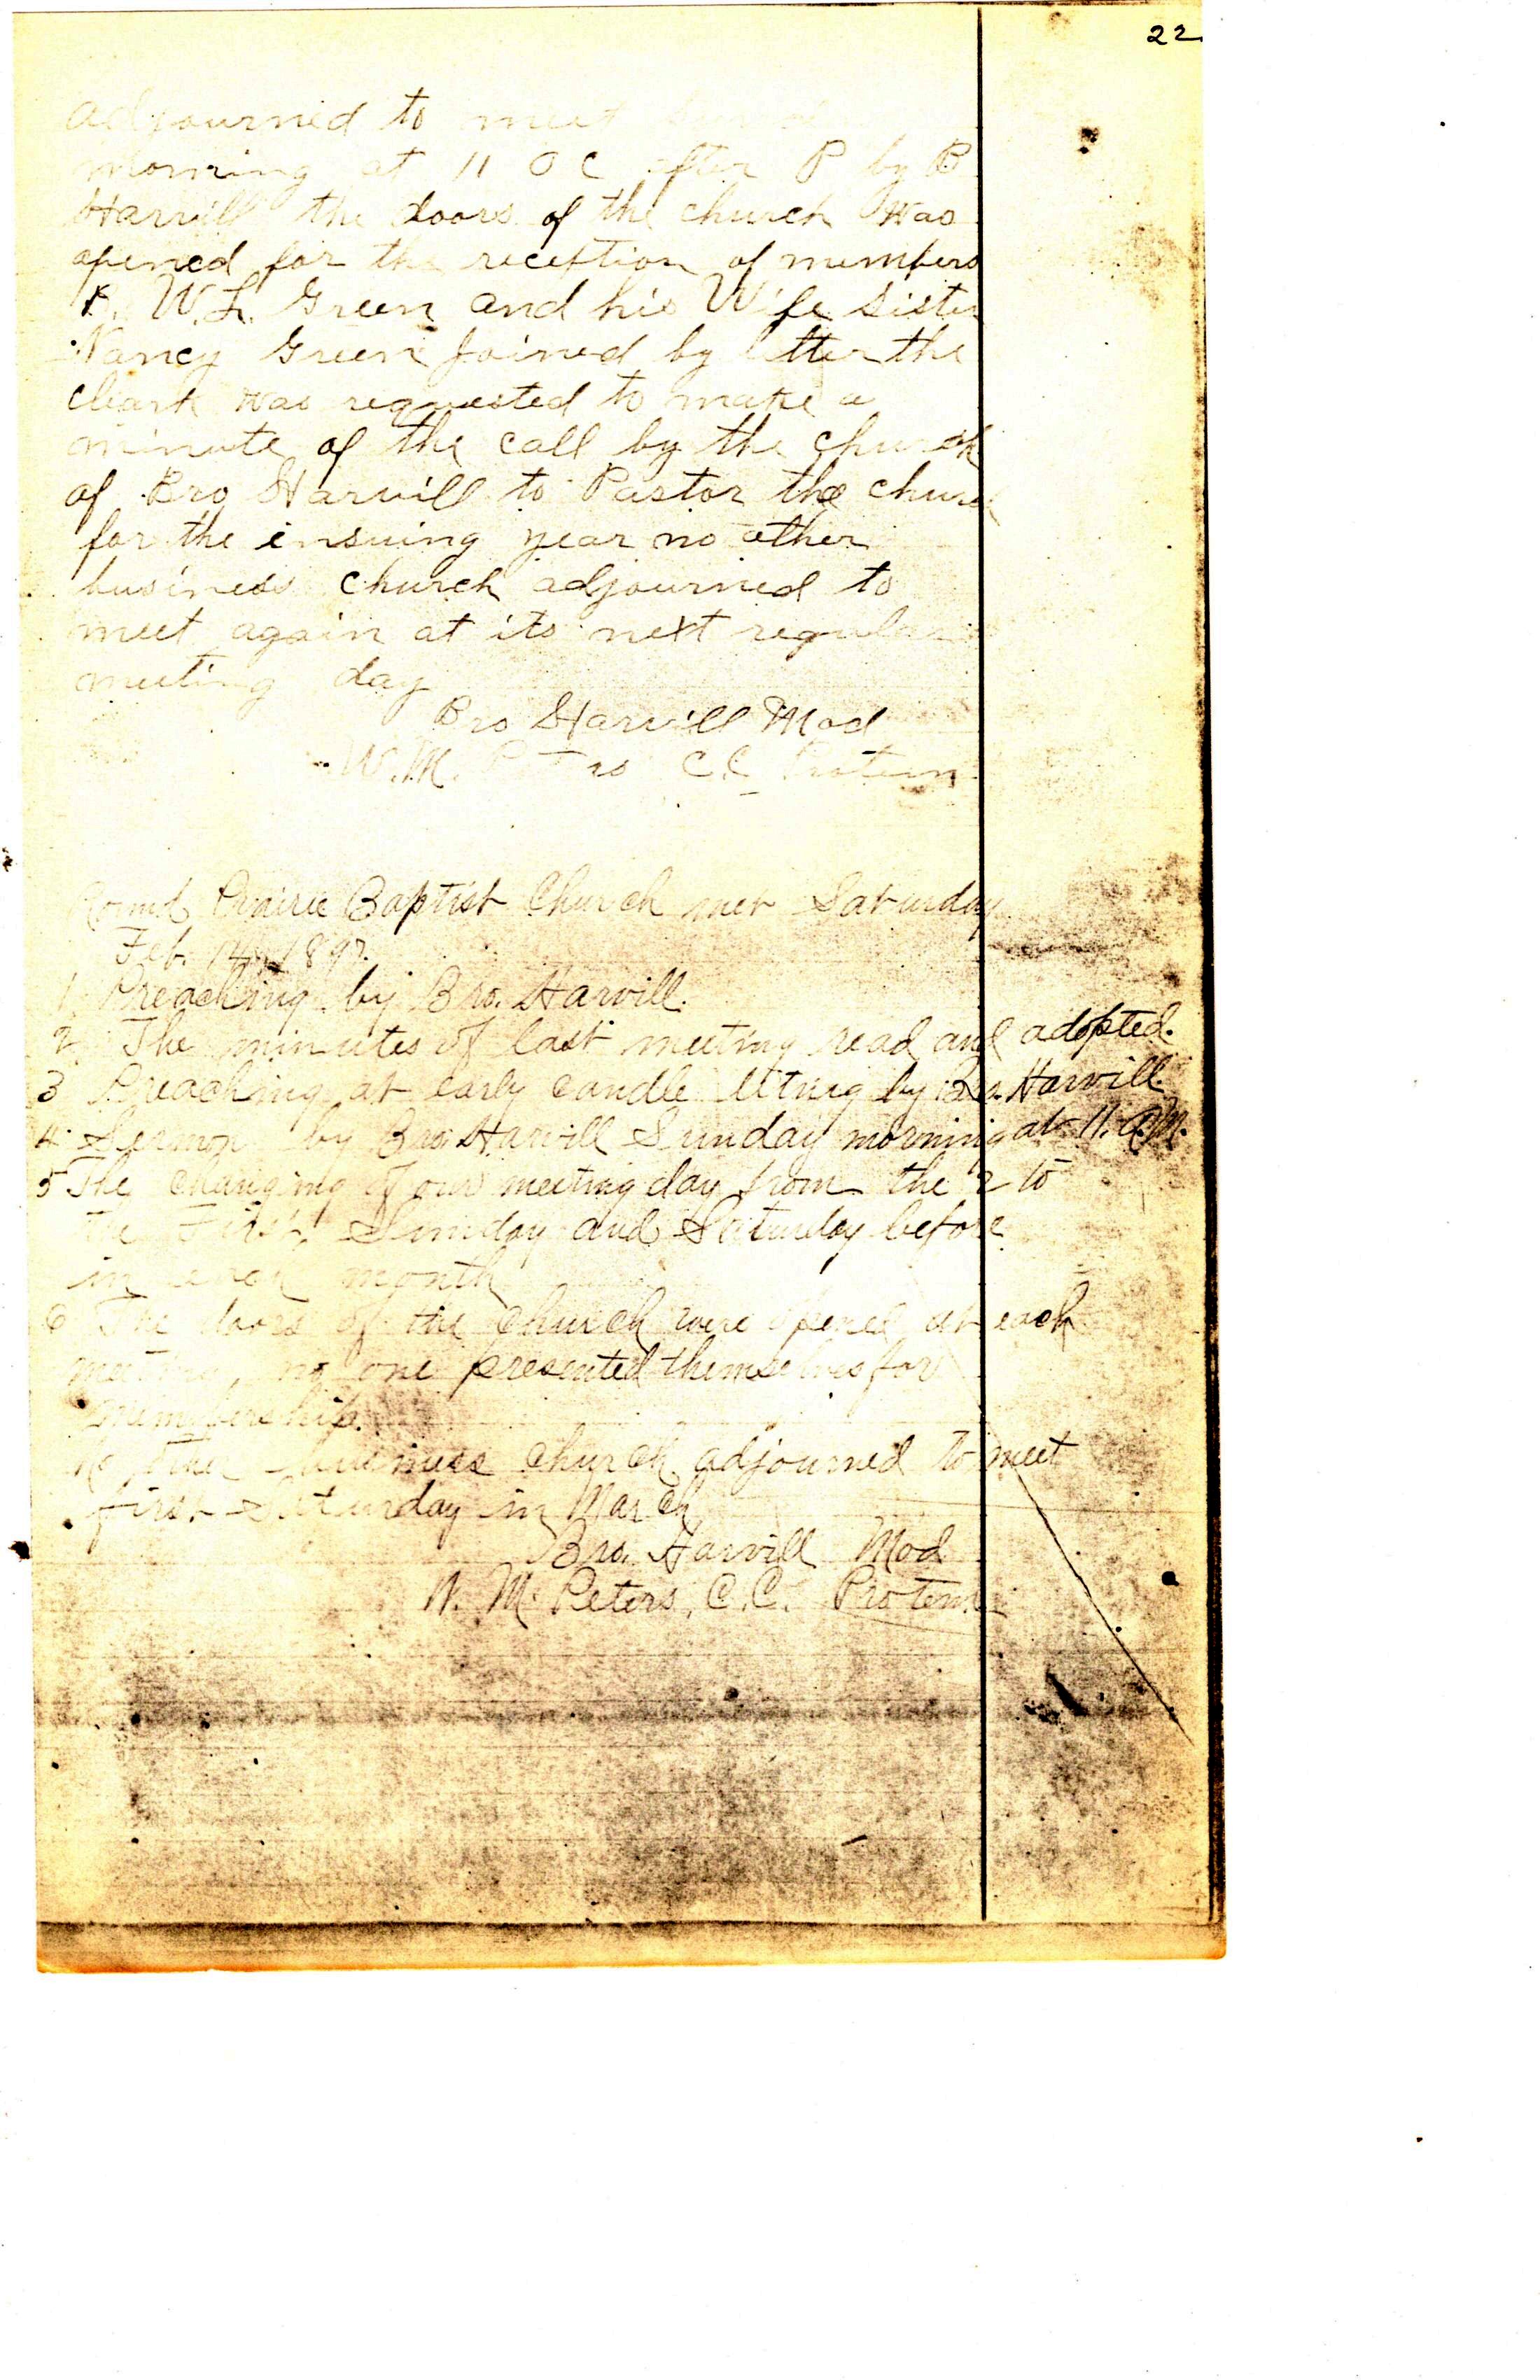 22
adjourned to meet
morning at 11 O C after P by B
Harvill the doors of the church was
opened for the reception of members
B. W.L. Green and his Wife Sister
Nancy Green Joined by letter the
Cleark was requested to make a
minute of the call by the church
of Bro Harvill to Pastor the church
for the ensuing year no other
business church adjourned to
meet again at its next regular
meeting day
Bro Harvill Mod
W.M. Peters C.C. Protem
Round Prairie Baptist Church met Saturday
Feb. 14, 1897.
1 Preaching by Bro. Harvill.
2 The minutes of last meeting read and adopted.
3 Preaching at early candle by Bro. Harvill.
4 Sermon by Bro. Harvill Sunday morning at 11. A.M.
5 The changing of our meeting day from the 2 to
the First Sunday and Saturday before
in each month
6 The doors of the church were opened at each
meeting, no one presented themselves for
membership.
No other business church adjourned to meet
first Saturday in March
Bro. Harvill Mod
W. M. Peters, C.C. Protem